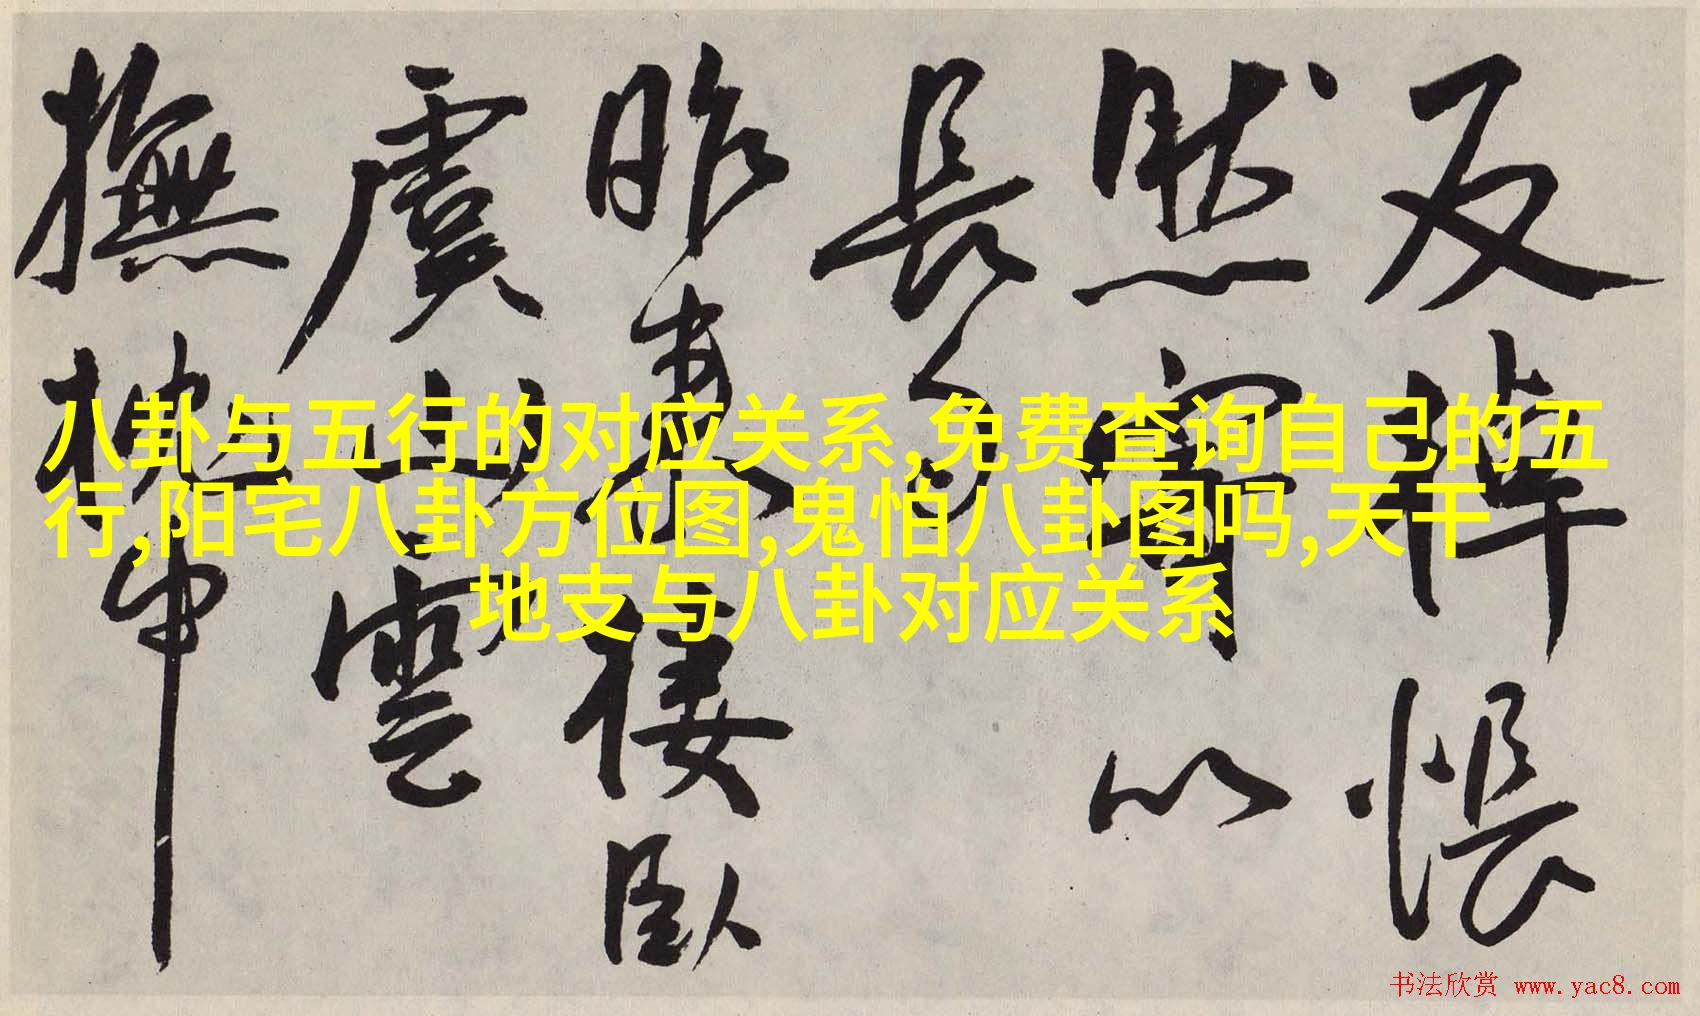 八卦与五行的对应关系,免费查询自己的五
行,阳宅八卦方位图,鬼怕八卦图吗,天干
地支与八卦对应关系
反悼悵
然實以
長
昨暮
樓臥
虞
雲
撫
申
书法欣赏 www.yac8.com